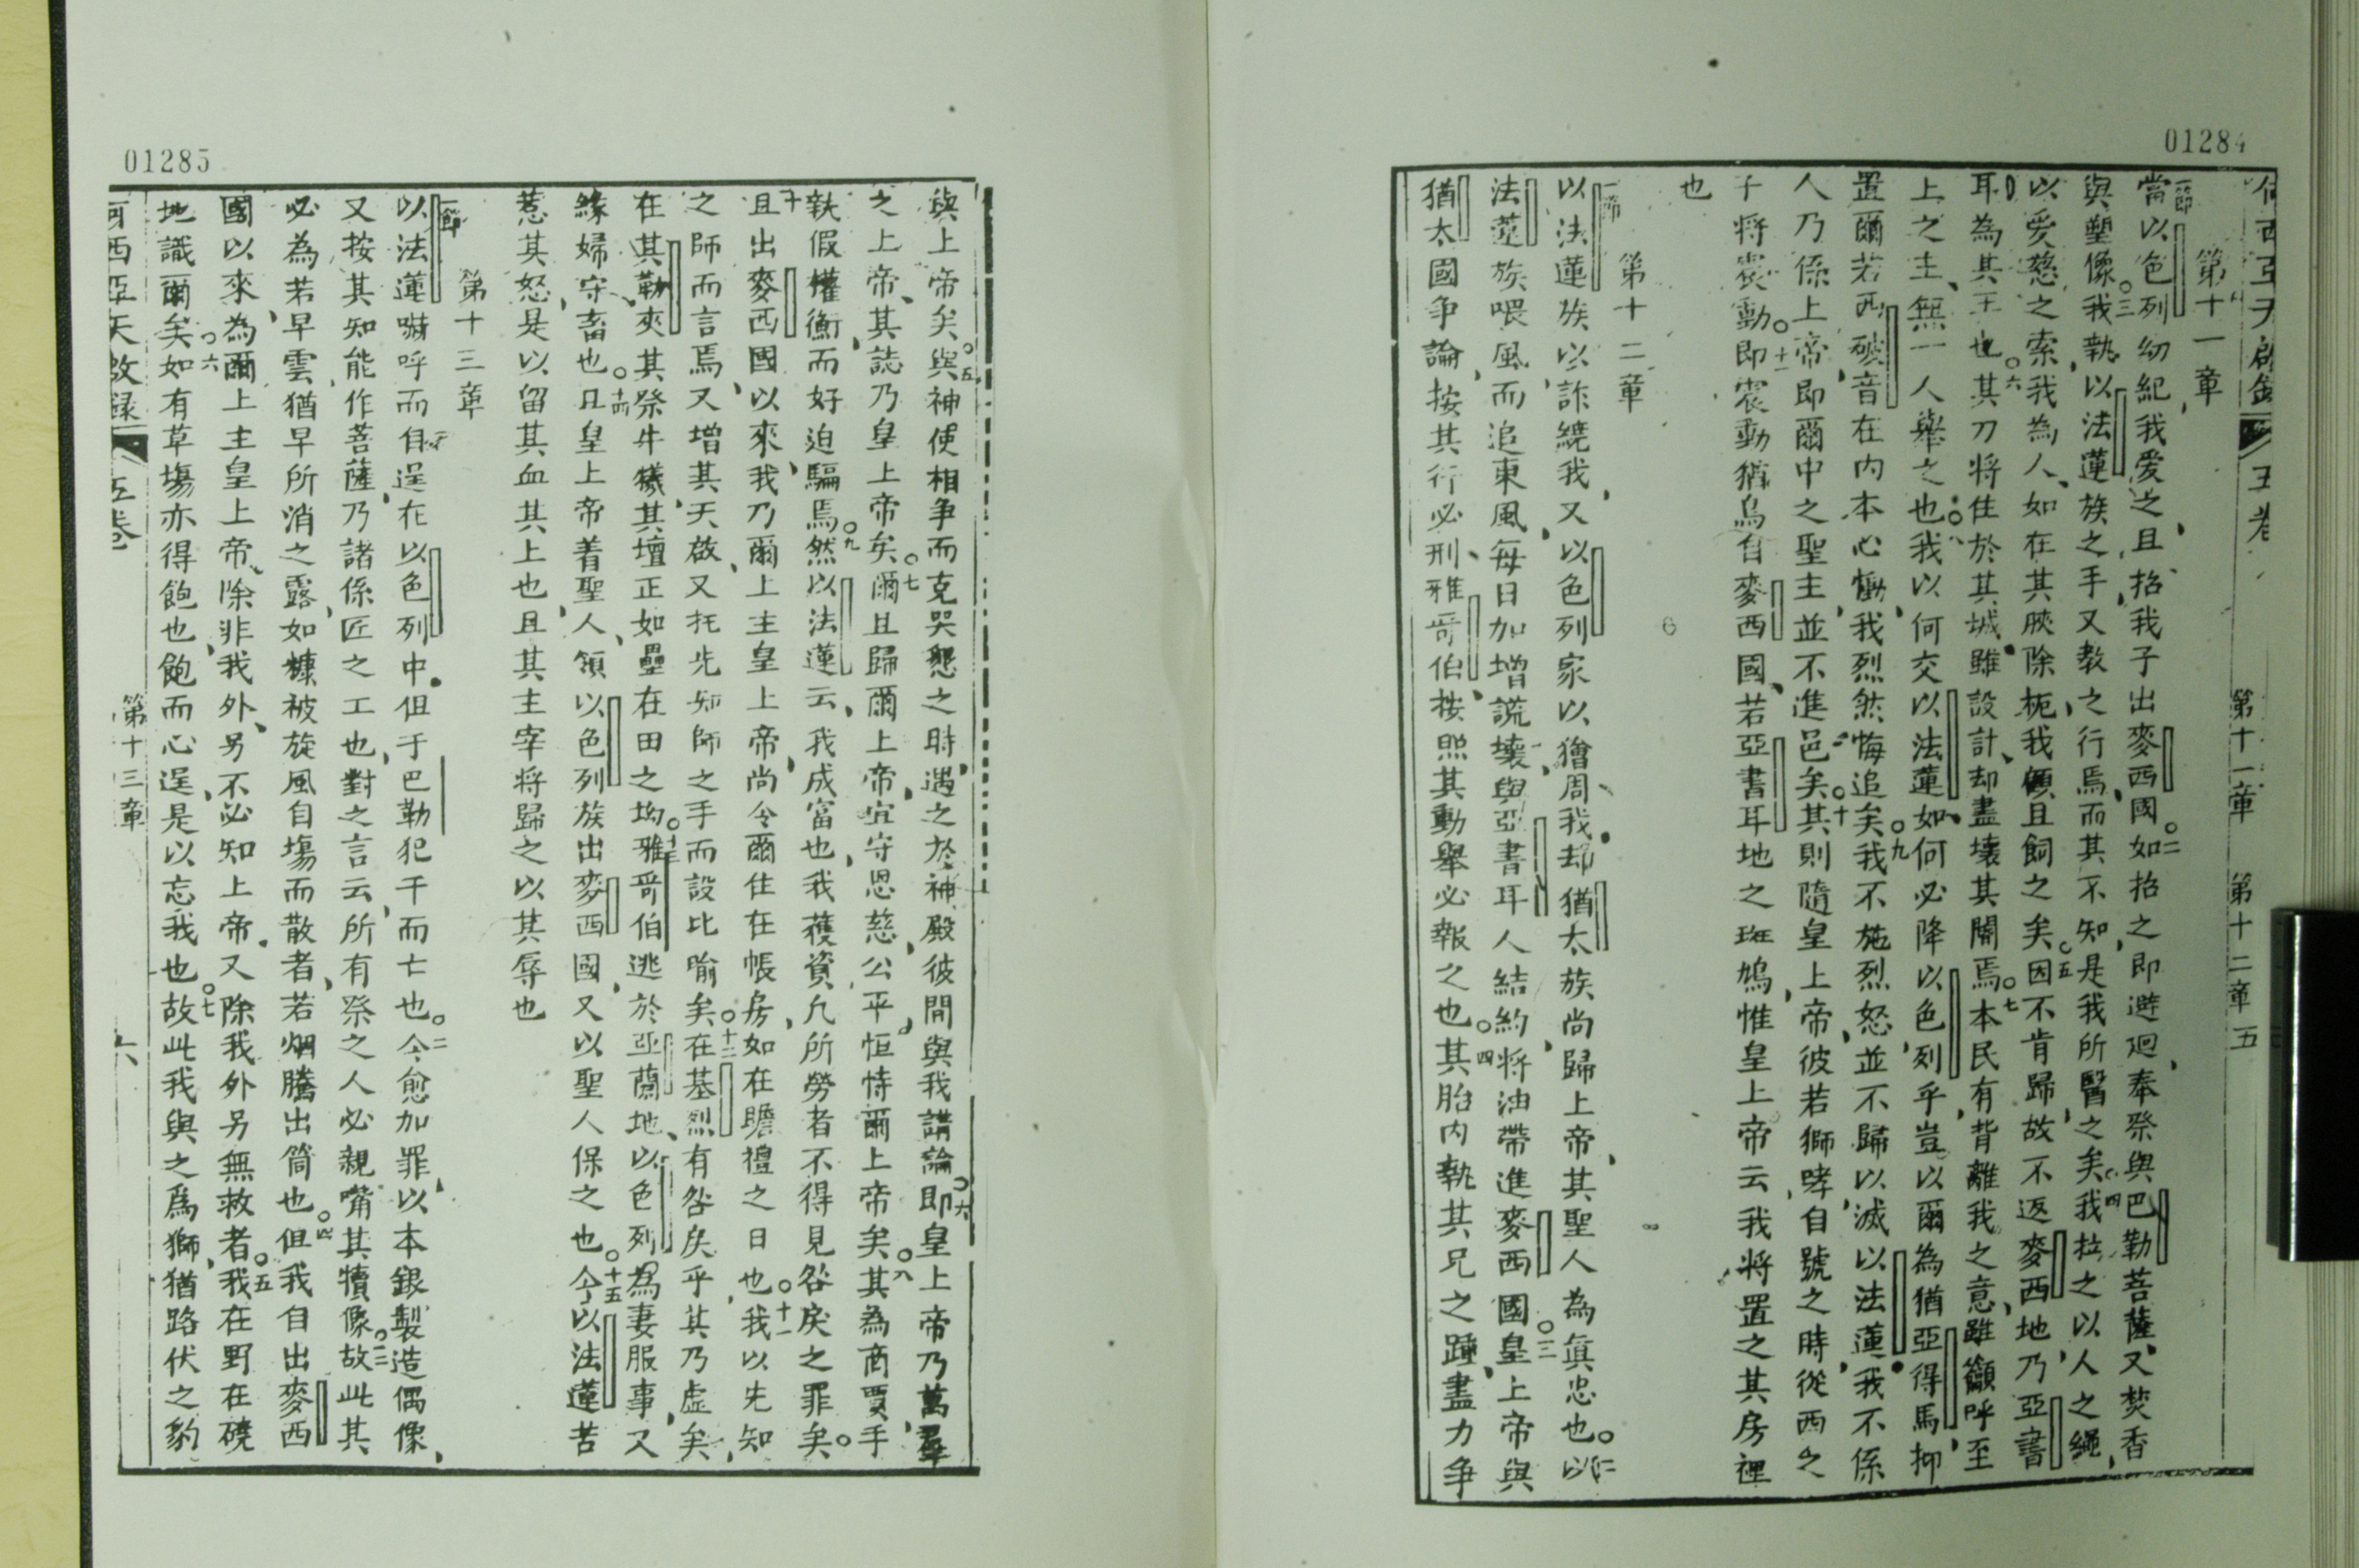 01284
何西亞天啟錄 五卷 第十一章 第十二章 五
第十一章
一節
當以色列幼紀我愛之且招我子出麥西國○二如招之即避迴奉祭與巴勒菩薩又焚香
與塑像○三我執以法蓮族之手又教之行焉而其不知是我所醫之矣○四我拉之以人之繩
以愛慈之索我為人如在其腴除柅我顧且飼之矣○五因不肯歸故不返麥西地乃亞書
耳為其王也○六其刀將住於其城雖設計却盡壞其關焉○七本民有背離我之意雖籲呼至
上之主無一人舉之也○八我以何交以法蓮如何必降以色列乎豈以爾為猶亞得馬抑
置爾若西破音在内本心慟我烈然悔追矣○九我不施烈怒並不歸以滅以法蓮我不係
人乃係上帝即爾中之聖主並不進邑矣○十其則隨皇上帝彼若獅哮自號之時從西之
子將震動○十一即震動猶鳥自麥西國若亞書耳地之斑鳩惟皇上帝云我將置之其房裡
也
第十二章
一節
以法蓮族以詐繞我又以色列家以獪周我却猶太族尚歸上帝其聖人為眞忠也○二以
法蓮族喂風而追東風每日加增謊壞與亞書耳人結約將油帶進麥西國○三皇上帝與
猶太國爭論按其行必刑雅哥伯按照其動舉必報之也○四其胎内執其兄之踵盡力爭
01285
與上帝矣○五與神使相爭而克哭懇之時遇之於神殿彼間與我講論○六即皇上帝乃萬羣
之上帝其誌乃皇上帝矣○七爾且歸爾上帝宜守恩慈公平恒恃爾上帝矣○八其為商賈手
執假權衡而好迫騙焉○九然以法蓮云我成富也我獲資凡所勞者不得見咎戾之罪矣○
十且出麥西國以來我乃爾上主皇上帝尚令爾住在帳房如在瞻禮之日也○十一我以先知
之師而言焉又增其天啟又托先知師之手而設比喻矣○十二在基烈有咎戾乎其乃虛矣
在其勒夾其祭牛犧其壇正如壘在田之坳○十三雅哥伯逃於亞蘭地以色列為妻服事又
緣婦守畜也○十四且皇上帝着聖人領以色列族出麥西國又以聖人保之也○十五今以法蓮苦
惹其怒是以留其血其上也且其主宰將歸之以其辱也
第十三章
一節
以法蓮嚇呼而自逞在以色列中但于巴勒犯干而亡也○二今愈加罪以本銀製造偶像
又按其知能作菩薩乃諸係匠之工也對之言云所有祭之人必親嘴其犢像○三故此其
必為若早雲猶早所消之露如糠被旋風自塲而散者若烟騰出筒也○四但我自出麥西
國以來為爾上主皇上帝除非我外另不必知上帝又除我外另無救者○五我在野在磽
地識爾矣○六如有草塲亦得飽也飽而心逞是以忘我也○七故此我與之爲獅猶路伏之豹
何西亞天啟錄 五卷 第十三章 六